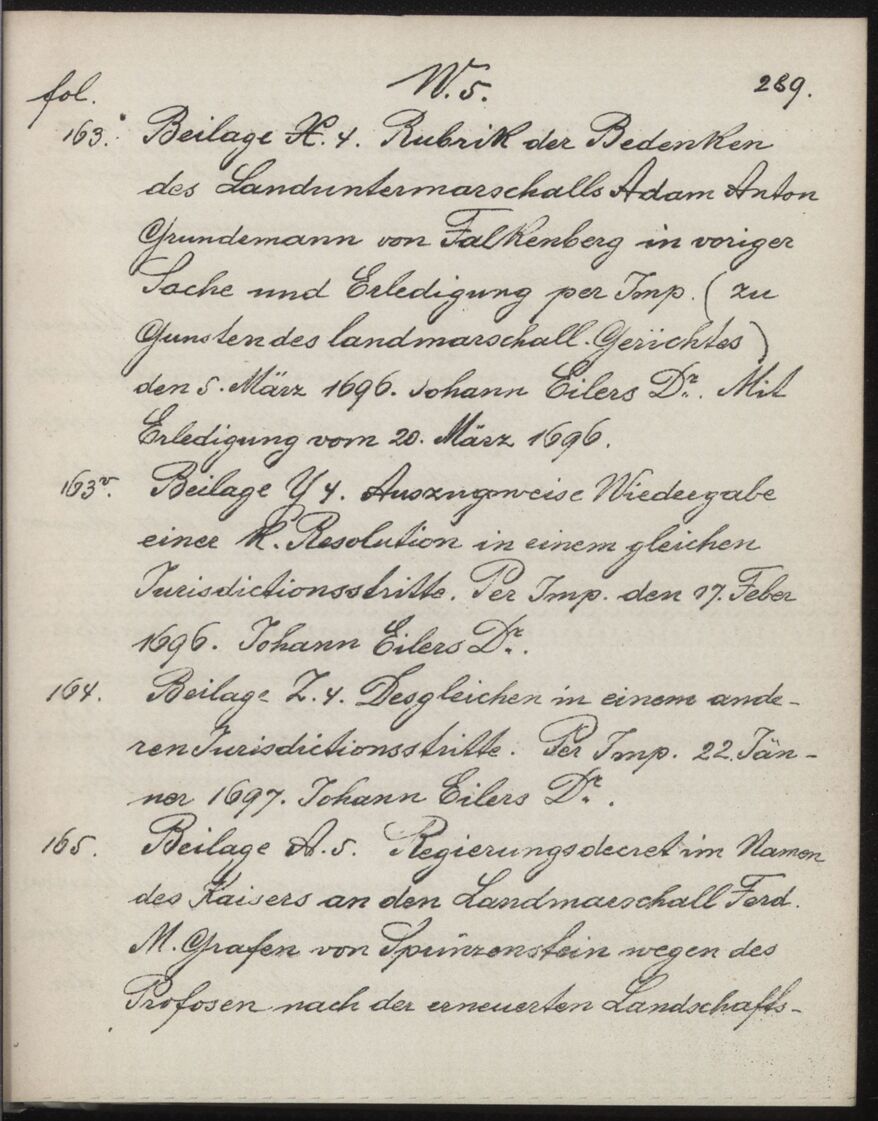 fol. W. 5. 289.
163. Beilage X. 4. Rubrik der Bedenken
des Landuntermarschalls Adam Anton
Grundemann von Falkenberg in voriger
Sache und Erledigung per Imp. (zu
Gunsten des landmarschall. Gerichtes)
den 5. März 1696. Johann Eilers Dr. Mit
Erledigung vom 20. März 1696.
163v. Beilage Y 4. Auszugweise Wiedergabe
einer k. Resolution in einem gleichen
Jurisdictionsstritte. Per Imp. den 17. Feber
1696. Johann Eilers Dr.
164. Beilage Z. 4. Desgleichen in einem ande-
ren Jurisdictionsstritte. Per Imp. 22. Jän-
ner 1697. Johann Eilers Dr.
165. Beilage A. 5. Regierungsdecret im Namen
des Kaisers an den Landmarschall Ferd.
M. Grafen von Sprinzenstein wegen des
Profosen nach der erneuerten Landschafts-